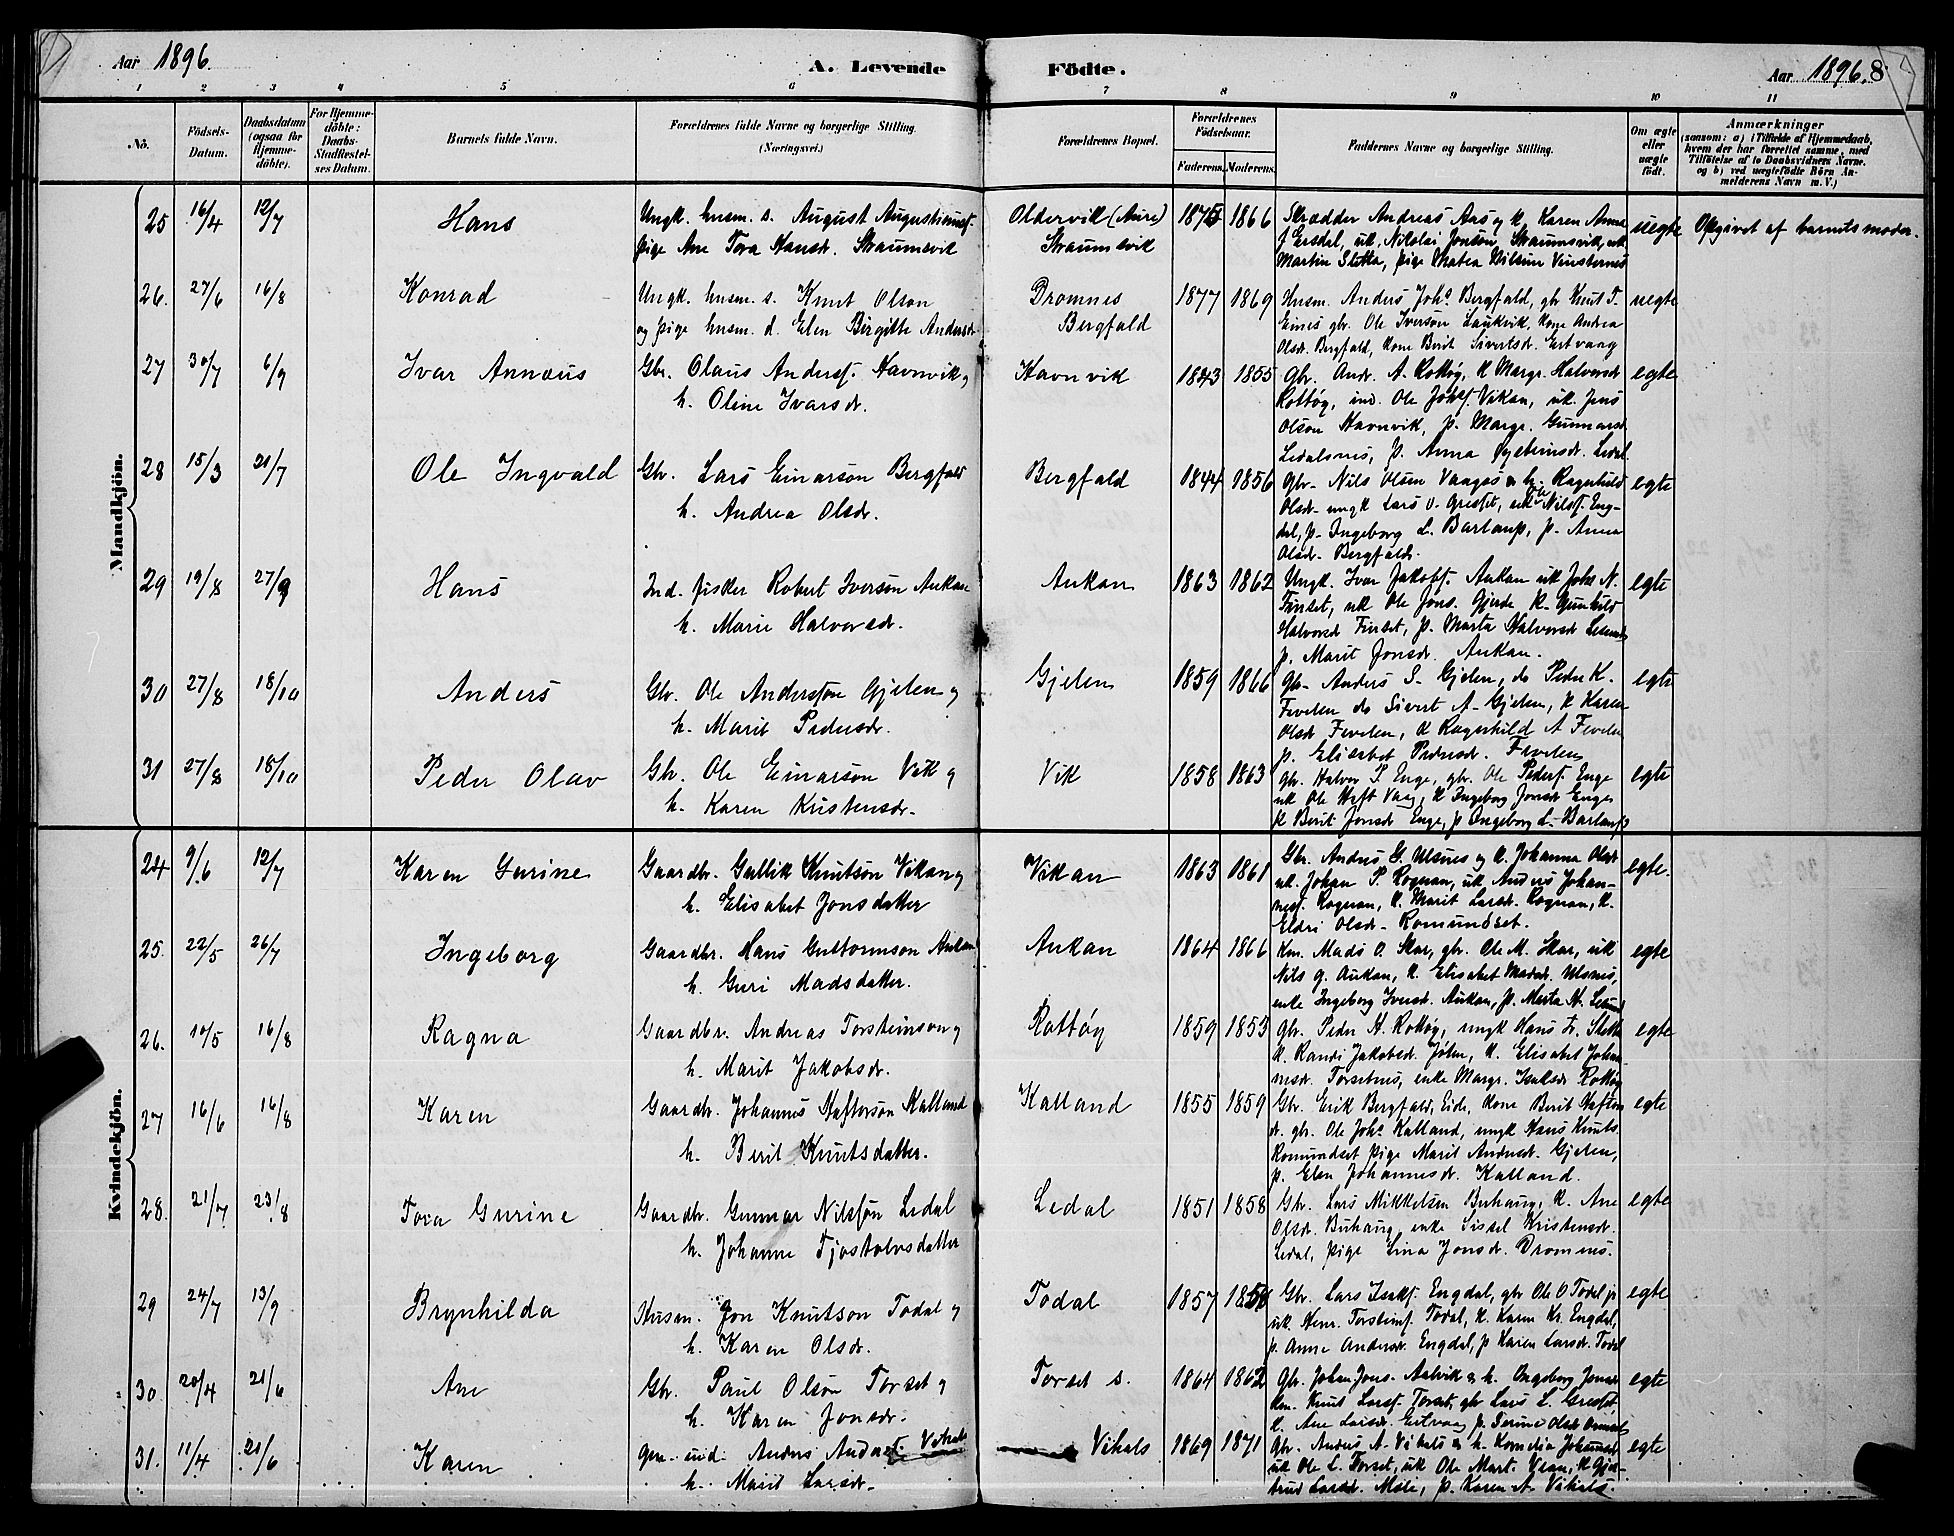 Aar 1896.
A. Levende Födte.
Aar 1896. 8
1 2 3 4 5 6 7 8 9 10 11
No.
Födsels-Datum.
Daabsdatum (ogsaa for Hjemme-döbte).
For Hjemme-döbte: Daabs-Stadfæstel-ses Datum.
Barnets fulde Navn.
Forældrenes fulde Navne og borgerlige Stilling. (Næringsvei.)
Forældrenes Bopæl.
Forældrenes Födselsaar.
Faderens. Moderens.
Faddernes Navne og borgerlige Stilling.
Om ægte eller uægte födt.
Anmærkninger
(saasom: a) i Tilfælde af Hjemmedaab, hvem der har forrettet samme, med Tilföielse af to Daabsvidners Navne. og b) ved uægtefödte Börn An-melderens Navn m. V.)
Mandkjön.
25 16/4 12/7 Hans
Ungk. husm. s. August Augustinusf.
pige Ane Tora Hansdr. Straumsvik
Oldervik (Aure)
Straumsvik
1875 1866
Skrædder Andreas Aas og k. Karen Anna
Ersdal, uk. Nikolai Jonsön, Straumsvik, uk
Martin Stokka, pige
uegte
Opgivet af barnets moder.
26. 27/6 16/8 Konrad
Ungk. husm. s. Knut Olson
og pige husm. d. Elen Birgitte Andersdr
Dromnes
Bergfald
1877 1869
Husm. Anders Johs. Bergfald, gbr Knut T.
Eines gbr. Ole Iverson Laukvik, kone Andrea
Olsdr. Bergfald, kone Berit Sivertsdr. Ertvaag
uegte
27 30/7 6/9 Ivar Annæus
Gbr. Olaus Andersf. Havnvik og
h. Oline Ivarsdr.
Havnvik
1843 1855
Gbr. Andr. A. Rottög, k Margr. Halvorsdr
Rottög, ind. Ole Johsf. Vikan, uk. Jens
Olson Havnvik, p. Margr. Gunnarsdr
Ledalsnes, p. Anna Öysteinsdr. Ledal
egte
28 15/3 21/7 Ole Ingvald
Gbr. Lars Einarson Bergfald
h. Andrea Olsdr.
Bergfald
1844 1856
Gbr. Nils Olsen Vaagos og h. Ragnhild
Olsdr. ungk Lars O. Gresset, uk Ole Nilsf. Eng-
dal, p. Ingeborg L. Bartanp, p. Anna
Olsdr. Bergfald.
egte
29 19/8 27/9 Hans
Ind. fisker Robert Iverson Aukan
h. Marie Halvorsdr.
Aukan
1863 1862
Ungk. Ivar Jakobsf. Aukan uk Johs N.
Finset, uk Ole Jons. Gjerde k. Gunhild
Halvorsd Finset, p. Marta Halvorsd
p. Marit Jonsdr. Aukan.
egte
30 27/8 18/10 Anders
Gbr. Ole Anderssön Gjelen og
h. Marit Pedersdr.
Gjelen
1859 1866
Gbr. Anders S. Gjelen, do Peder K.
Fevelen do Sivert A. Gjelen, k Karen
Olsdr Fevelen, k Ragnhild A Fevelen
p. Elisabet Pedersdr. Fevelen
egte
31 27/8 18/10 Peder Olav
Gbr. Ole Einarson Vik og
h. Karen Kristensdr.
Vik
1858 1863
Gbr. Halvor P. Enge, gbr. Ole Pedersf. Enge
uk Ole Haft Vaag, k Ingeborg Jonsdr Enge
k Berit Jonsdr Enge, p Ingeborg L. Bartanp
egte
Kvindekjön.
24 9/6 12/7 Karen Gurine
Gaardbr. Gullik Knutsön Vikan og
h. Elisabet Jonsdatter
Vikan
1863 1861
Gbr. Anders G. Ulsnes og k. Johanna Olsdr
uk. Johan P. Rognan, uk Anders Johan-
nesf. Rognan, k. Marit Larsdr. Rognan, k.
Eldri Olsdr. Romundset.
egte.
25. 22/5 26/7 Ingeborg
Gaardbr. Hans Guttormson Aukan
h. Guri Madsdatter.
Aukan
1864 1866
Km. Mads O. Skar, gbr. Ole M. Skar, uk
Nils G. Aukan, k. Elisabet Madsdr. Ulsnes,
enke Ingeborg Iversdr. Aukan, p. Marta H.
egte
26. 10/5 16/8 Ragna
Gaardbr. Andreas Torsteinson og
h. Marit Jakobsdr.
Rottög
1859 1853
Gbr. Peder A. Rottög, ungk Hans Fr.
k. Randi Jakobsdr. Jölen, k. Elisabet Johan-
nesdr. Torsetnes, enke Margr. Isaksdr Rottög
egte
27 16/6 16/8 Karen
Gaardbr. Johannes Haftorson Kalland
h. Berit Knutsdatter.
Kalland
1855 1859
Gbr. Erik Bergfald, Eide, kone Berit Haftors
dr. gbr. Ole Johs. Kalland, ungk Hans Knuts.
Romundset pige Marit Andersdr. Gjelen,
p. Elen Johannesdr. Kalland.
egte
28. 21/7 23/8 Tora Gurine
Gaardbr. Gunnar Nilssön Ledal
h. Johanne Tjostolvsdatter
Ledal
1851 1858
Gbr. Lars Mikkelsen Buhaug, k. Ane
Olsdr. Buhaug, enke Sissel Kristensdr.
Ledal, pige Lina Jonsdr. Dromnes.
egte
29 24/7 13/9 Brynhilda
Husm. Jon Knutson Todal og
h. Karen Olsdr.
Todal
1857
Gbr. Lars Isaksf. Engdal, gbr Ole O Todal jr
uk. Henr. Torsteinsf. Todal, k. Karen Kr. Engdal,
p. Anne Andersdr. Engdal, p Karen Larsdr. Todal
egte
30 20/4 21/6 Ane
Gbr. Paul Olson Torset og
h. Karen Jonsdr.
Torset s.
1864 1862
Gbr. Johan Jons. Aalvik og h. Ingeborg Jonsdr
km. Knut Larsf. Torset, gbr Lars L. Gresset,
k. Ane Larsdr. Ertvaag p. Serine Olsdr
egte
31. 11/4 21/6 Karen
gm. ind. Anders Andersf. Vihals
h. Marit Larsdr.
Vihals
1869 1871
Gbr. Anders A. Vihals og h. Kornelia Johannesdr
uk Ole L. Torset, uk Ole Mart. Vean, k Gjer-
trud Larsdr. Mele, p. Karen A. Vihals.
egte